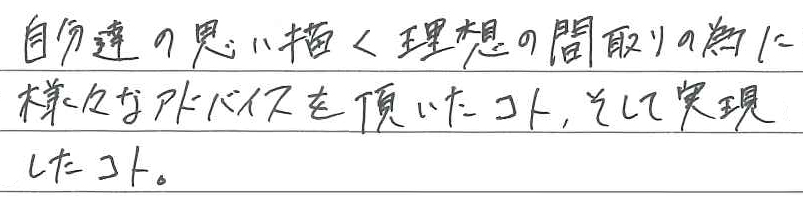 自分達の思い描く理想の間取りの為に
様々なアドバイスを頂いたコト,そして実現
したコト。